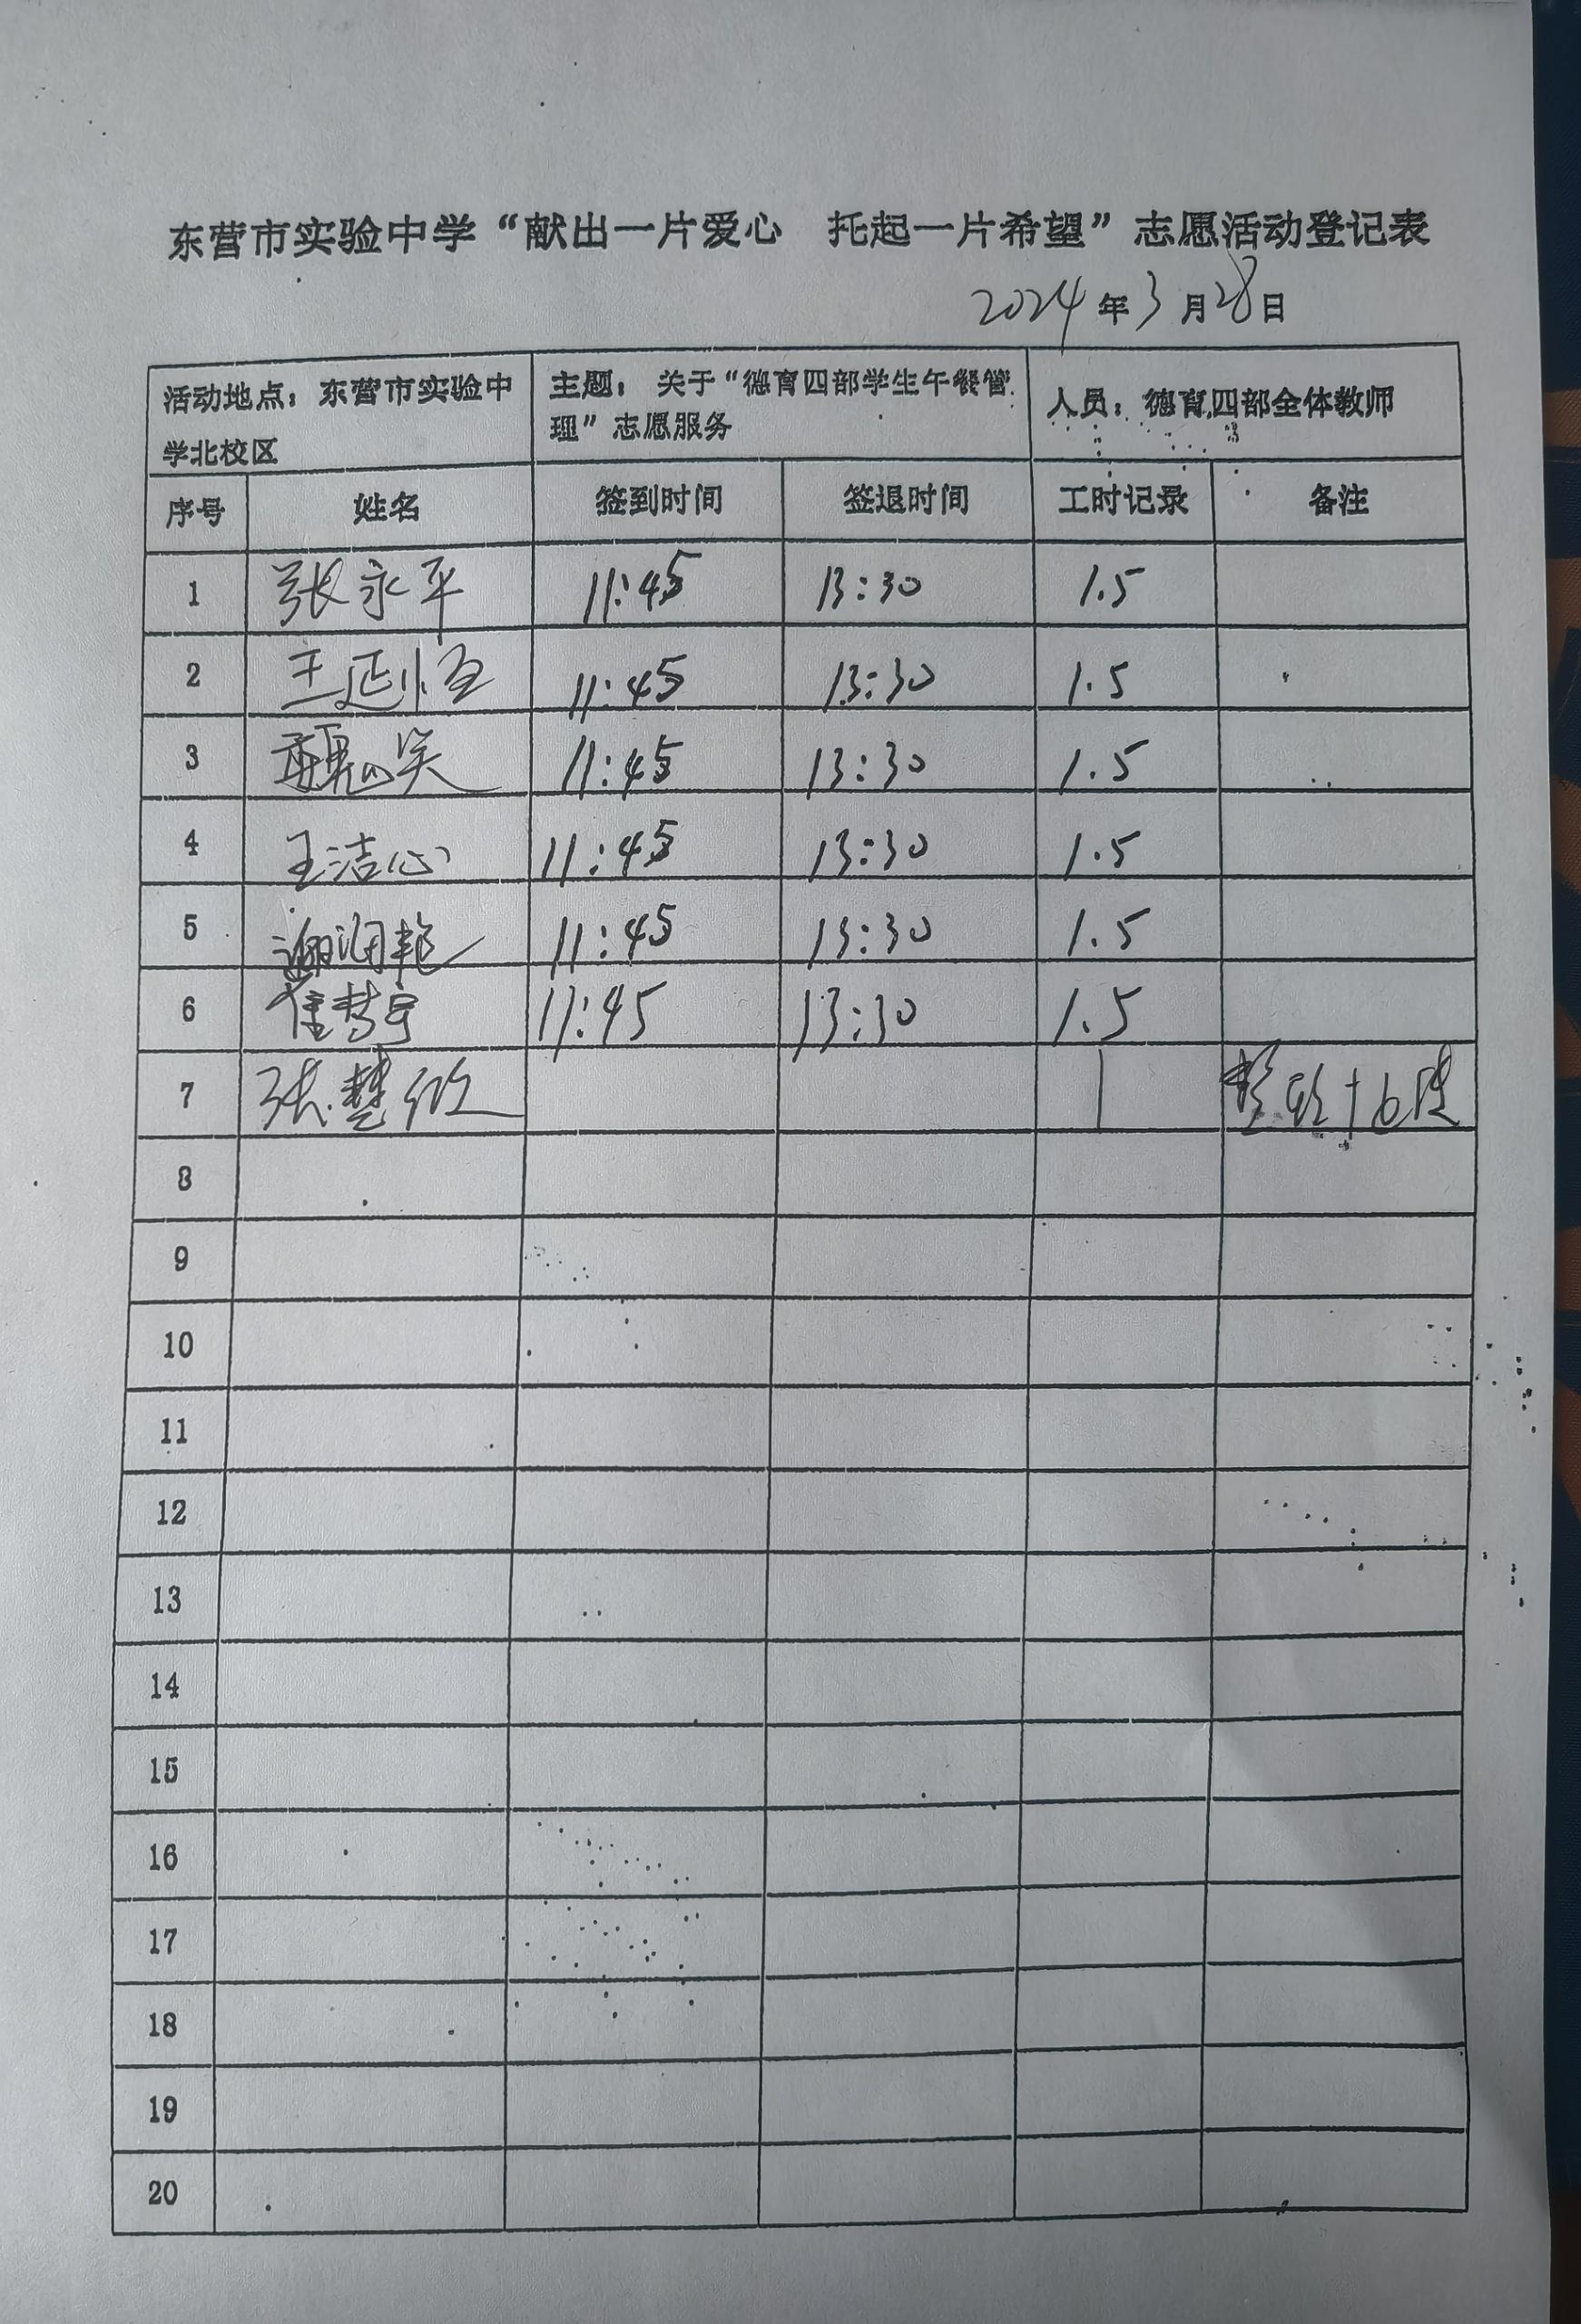 东营市实验中学“献出一片爱心 托起一片希望”志愿活动登记表
2024年3月28日
活动地点：东营市实验中
学北校区
主题： 关于“德育四部学生午餐管
理”志愿服务
人员：德育四部全体教师
序号 姓名 签到时间 签退时间 工时记录 备注
1 张永平 11:45 13:30 1.5
2 王延恒 11:45 13:30 1.5
3 魏笑 11:45 13:30 1.5
4 王洁心 11:45 13:30 1.5
5 谢润艳 11:45 13:30 1.5
6 崔梦宇 11:45 13:30 1.5
7 张楚 1
8
9
10
11
12
13
14
15
16
17
18
19
20